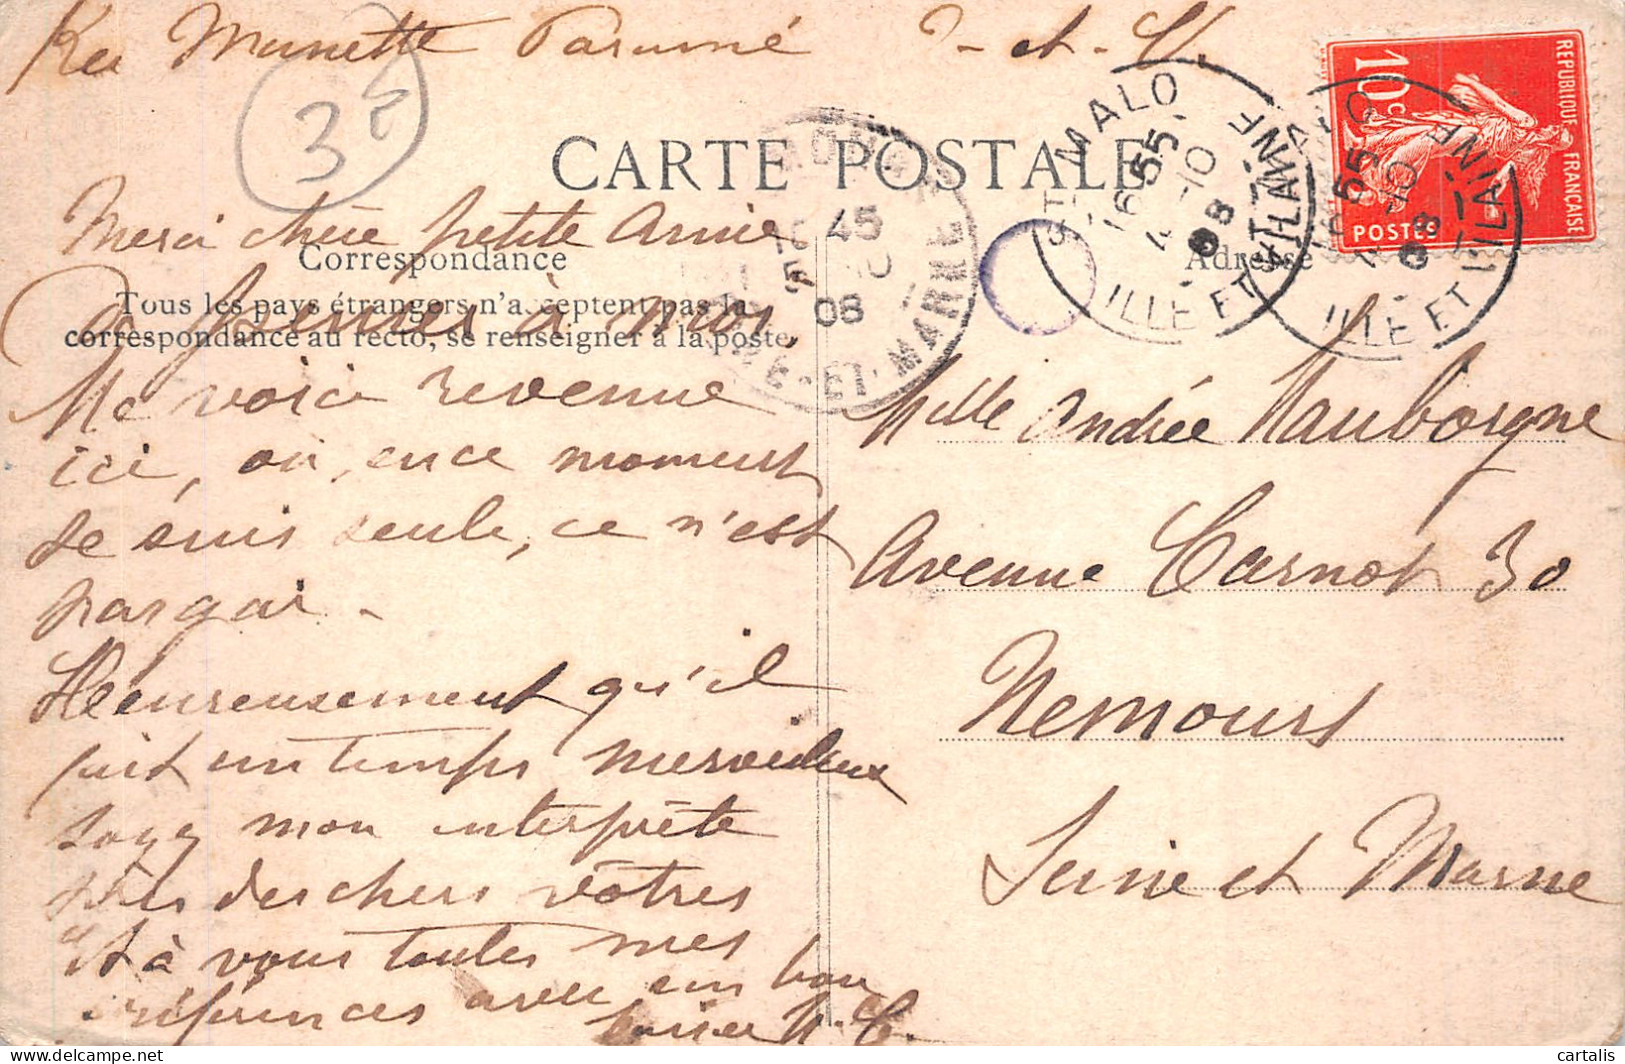 Ker Manette Paramé I-et-V.
3€
CARTE POSTALE
REPUBLIQUE FRANÇAISE
10c
POSTES
ST MALO
16 55
4-10
08
ILLE ET VILAINE
ST MALO
16 55
4-10
08
ILLE ET VILAINE
45
08
SEINE-ET-MARNE
Correspondance
Adresse
Tous les pays étrangers n'acceptent pas la
correspondance au recto, se renseigner à la poste.
Merci chère petite Amie
pensées à moi
Me voici revenue
ici, où, en ce moment
je suis seule, ce n'est
pas gai -
Heureusement qu'il
fait un temps merveilleux
soyez mon interprète
près des chers vôtres
et à vous toutes mes
préférences avec un bon
baiser M. C.
Mlle Andrée Mauborgne
Avenue Carnot 30
Nemours
Seine et Marne
cartalis